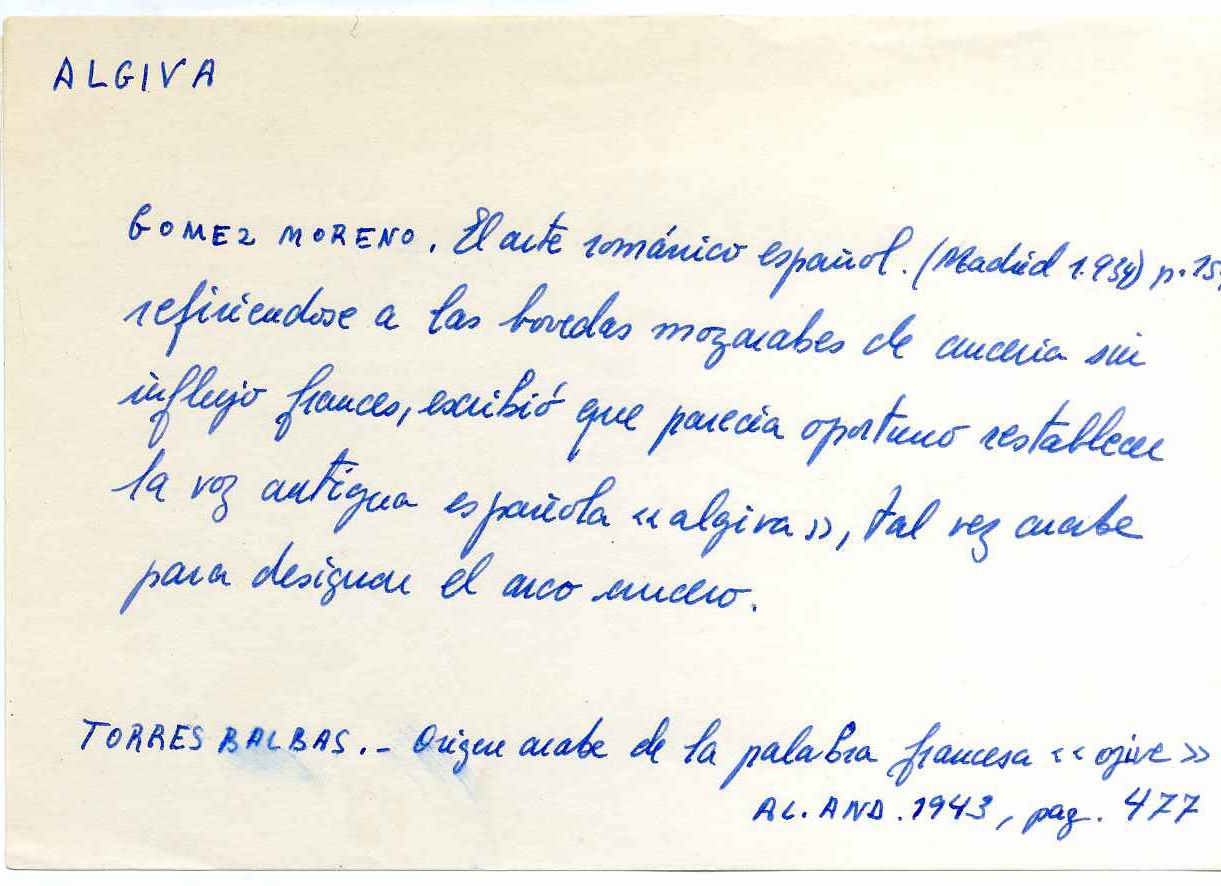 ALGIVA
GOMEZ MORENO. El arte románico español. (Madrid 1.934) p. 15,
refiriendose a las bovedas mozarabes de cruceria sin
influjo frances, escribió que parecia oportuno restablecer
la voz antigua española «algiva», tal vez arabe
para designar el arco crucero.
TORRES BALBAS. - Origen arabe de la palabra francesa «ojive»
AL. AND. 1943, pag. 477